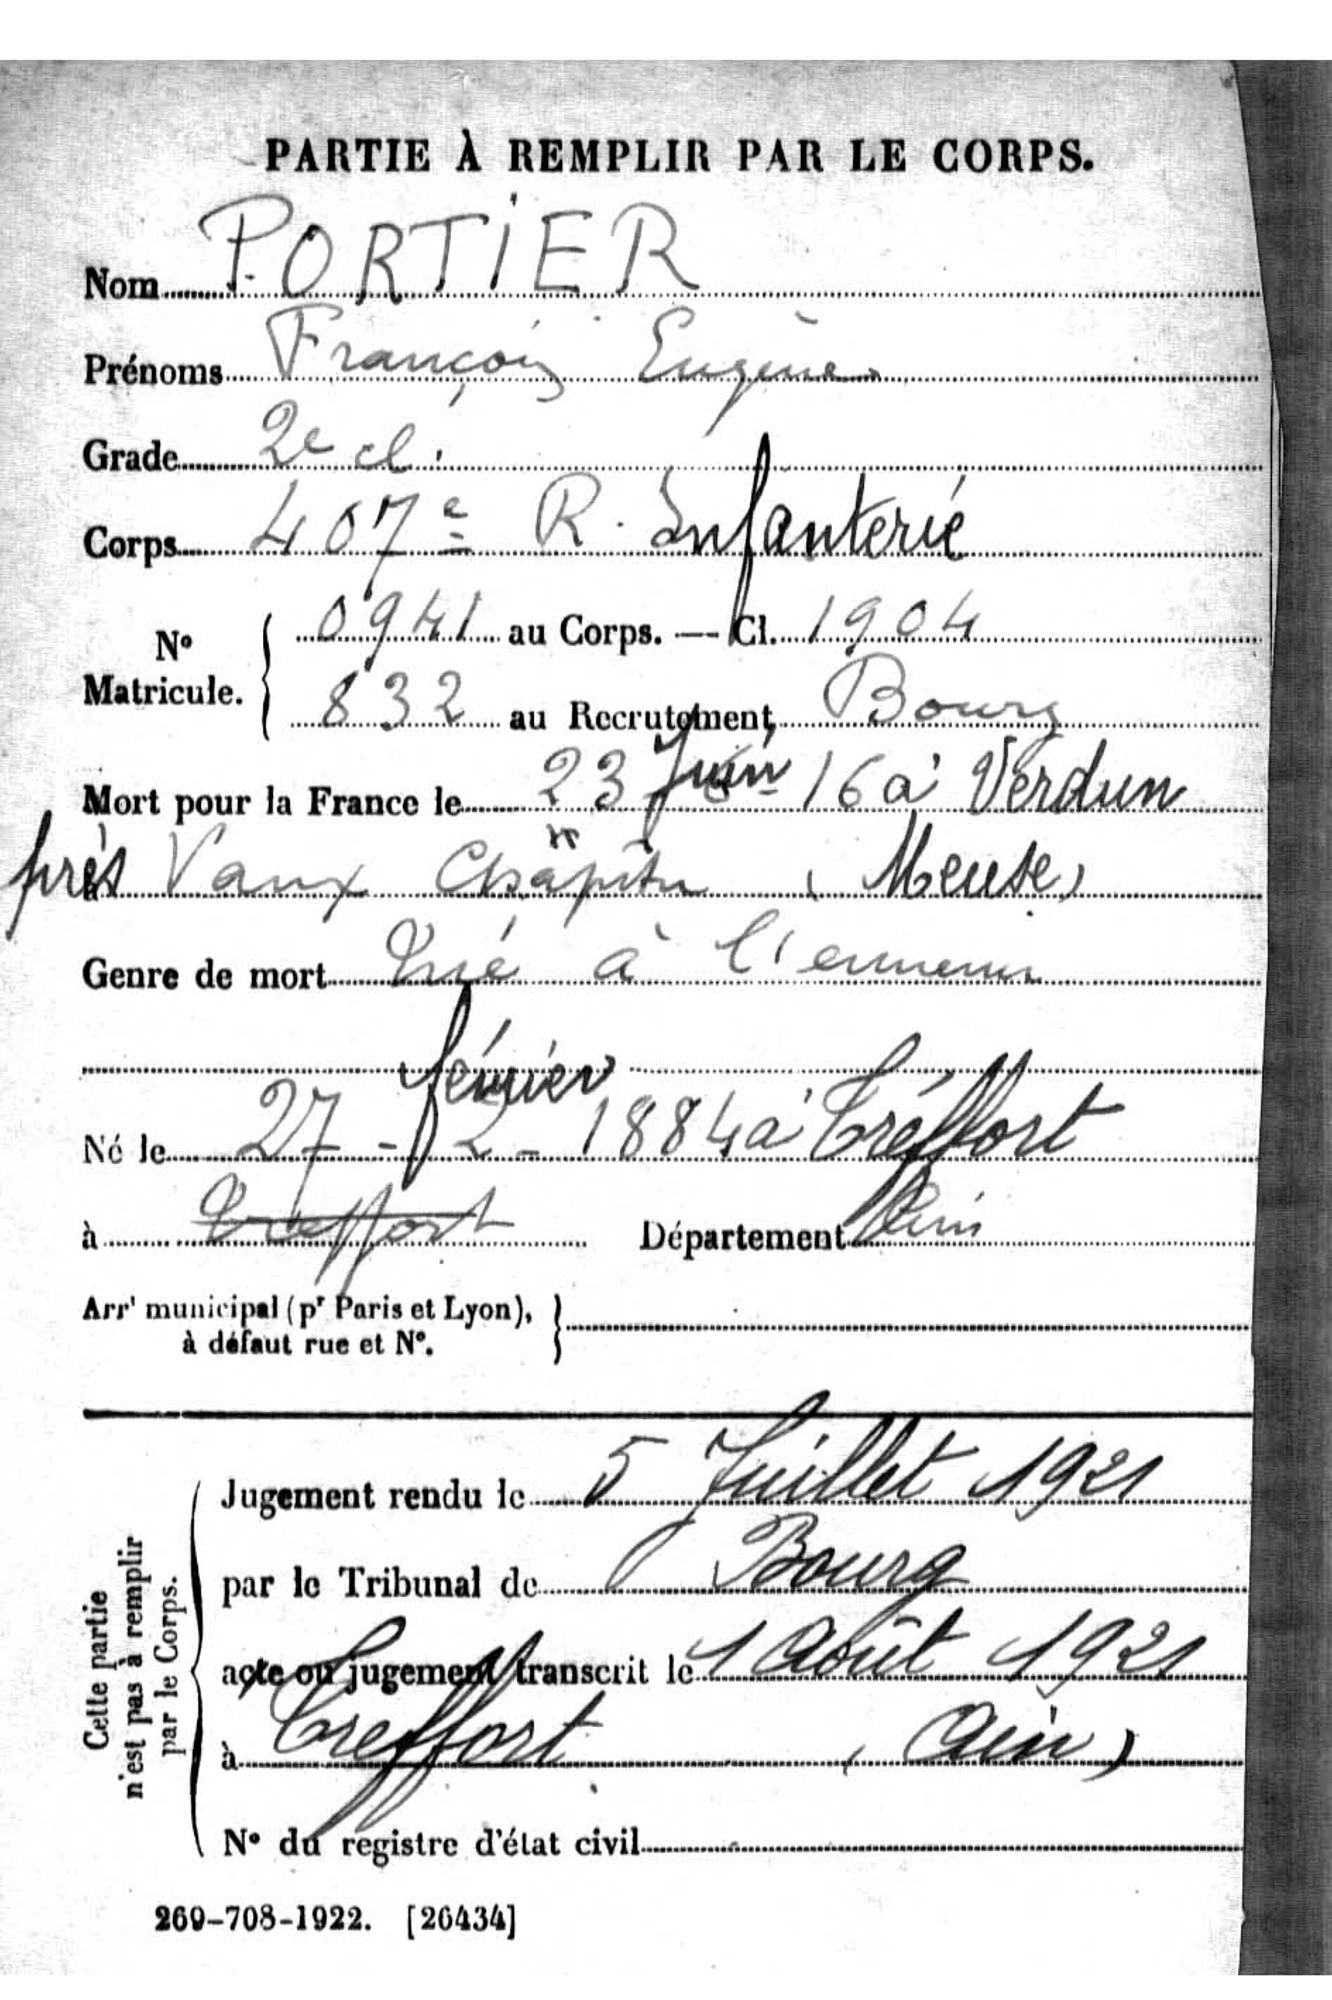 PARTIE À REMPLIR PAR LE CORPS.
Nom PORTIER
Prénoms François Eugène
Grade 2e cl.
Corps 407e R. Infanterie
No Matricule. 0941 au Corps. — Cl. 1904
832 au Recrutement Bourg
Mort pour la France le 23 Juin 16 à Verdun
près Vaux Chapitre (Meuse)
Genre de mort Tué à l'ennemi
février
Né le 27 - 2 - 1884 à Tréffort
à Treffort Département Ain
Arrt municipal (pr Paris et Lyon),
à défaut rue et No.
Cette partie
n'est pas à remplir
par le Corps.
Jugement rendu le 5 Juillet 1921
par le Tribunal de Bourg
acte ou jugement transcrit le 1 Août 1921
à Treffort (Ain)
No du registre d'état civil
269-708-1922. [26434]